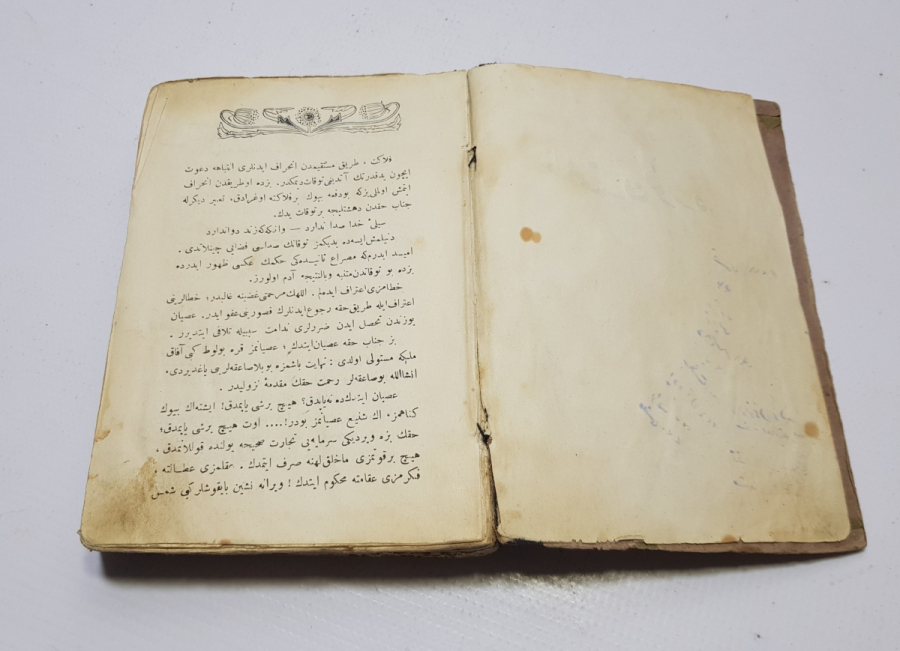 فلاكت ، طريق مستقيمدن انحراف ايدنلرى انتباهه دعوت
ايچون يدقدرتك آتديغى توقات ديمكدر. بزده او طريقدن انحراف
ايتمش اولمالى يزكه بودفعه بيوك بر فلاكته اوغرادق، تعبير ديكرله
جناب حقدن دهشتليجه بر توقات يدك.
سيلئ خدا صدا ندارد — وانكه كه زند دوا ندارد
دنيلمش ايسه ده يديكمز توقاتك صداسى فضايى چينلاتدى .
اميد ايدرم كه مصراع ثانيده كى حكمك عكسى ظهور ايدرده
بزده بو توقاتدن متنبه وبالنتيجه آدم اولورز.
خطامزى اعتراف ايده لم . اللهك مرحمتى غضبنه غالبدر؛ خطالرينى
اعتراف ايله طريق حقه رجوع ايدنلرك قصورينى عفو ايدر. عصيان
يوزندن تحصل ايدن ضررلرى ندامت سببيله تلافى ايتديرر .
بز جناب حقه عصيان ايتدك؛ عصيانمز قره بولوط كبى آفاق
ملكه مستولى اولدى : نهايت باشمزه بو بلا صاعقه لرينى ياغديردى،
انشاالله بو صاعقه لر رحمت حقك مقدمهٔ نزوليدر .
عصيان ايتدكده نه يابدق؟ هيچ برشى يابمدق! ايشته اك بيوك
كناهمز، اك شنيع عصيانمز بودر!.... اوت هيچ برشى يابمدق؛
حقك بزه ويرديكى سرمايه يى تجارت صحيحه يولنده قوللانمدق ،
هيچ بر قوتمزى ماخلق لهنه صرف ايتمدك . عقلمزى عطالته ،
فكرمزى عقامته محكوم ايتدك ! ويرانه نشين بايقوشلر كبى شمس